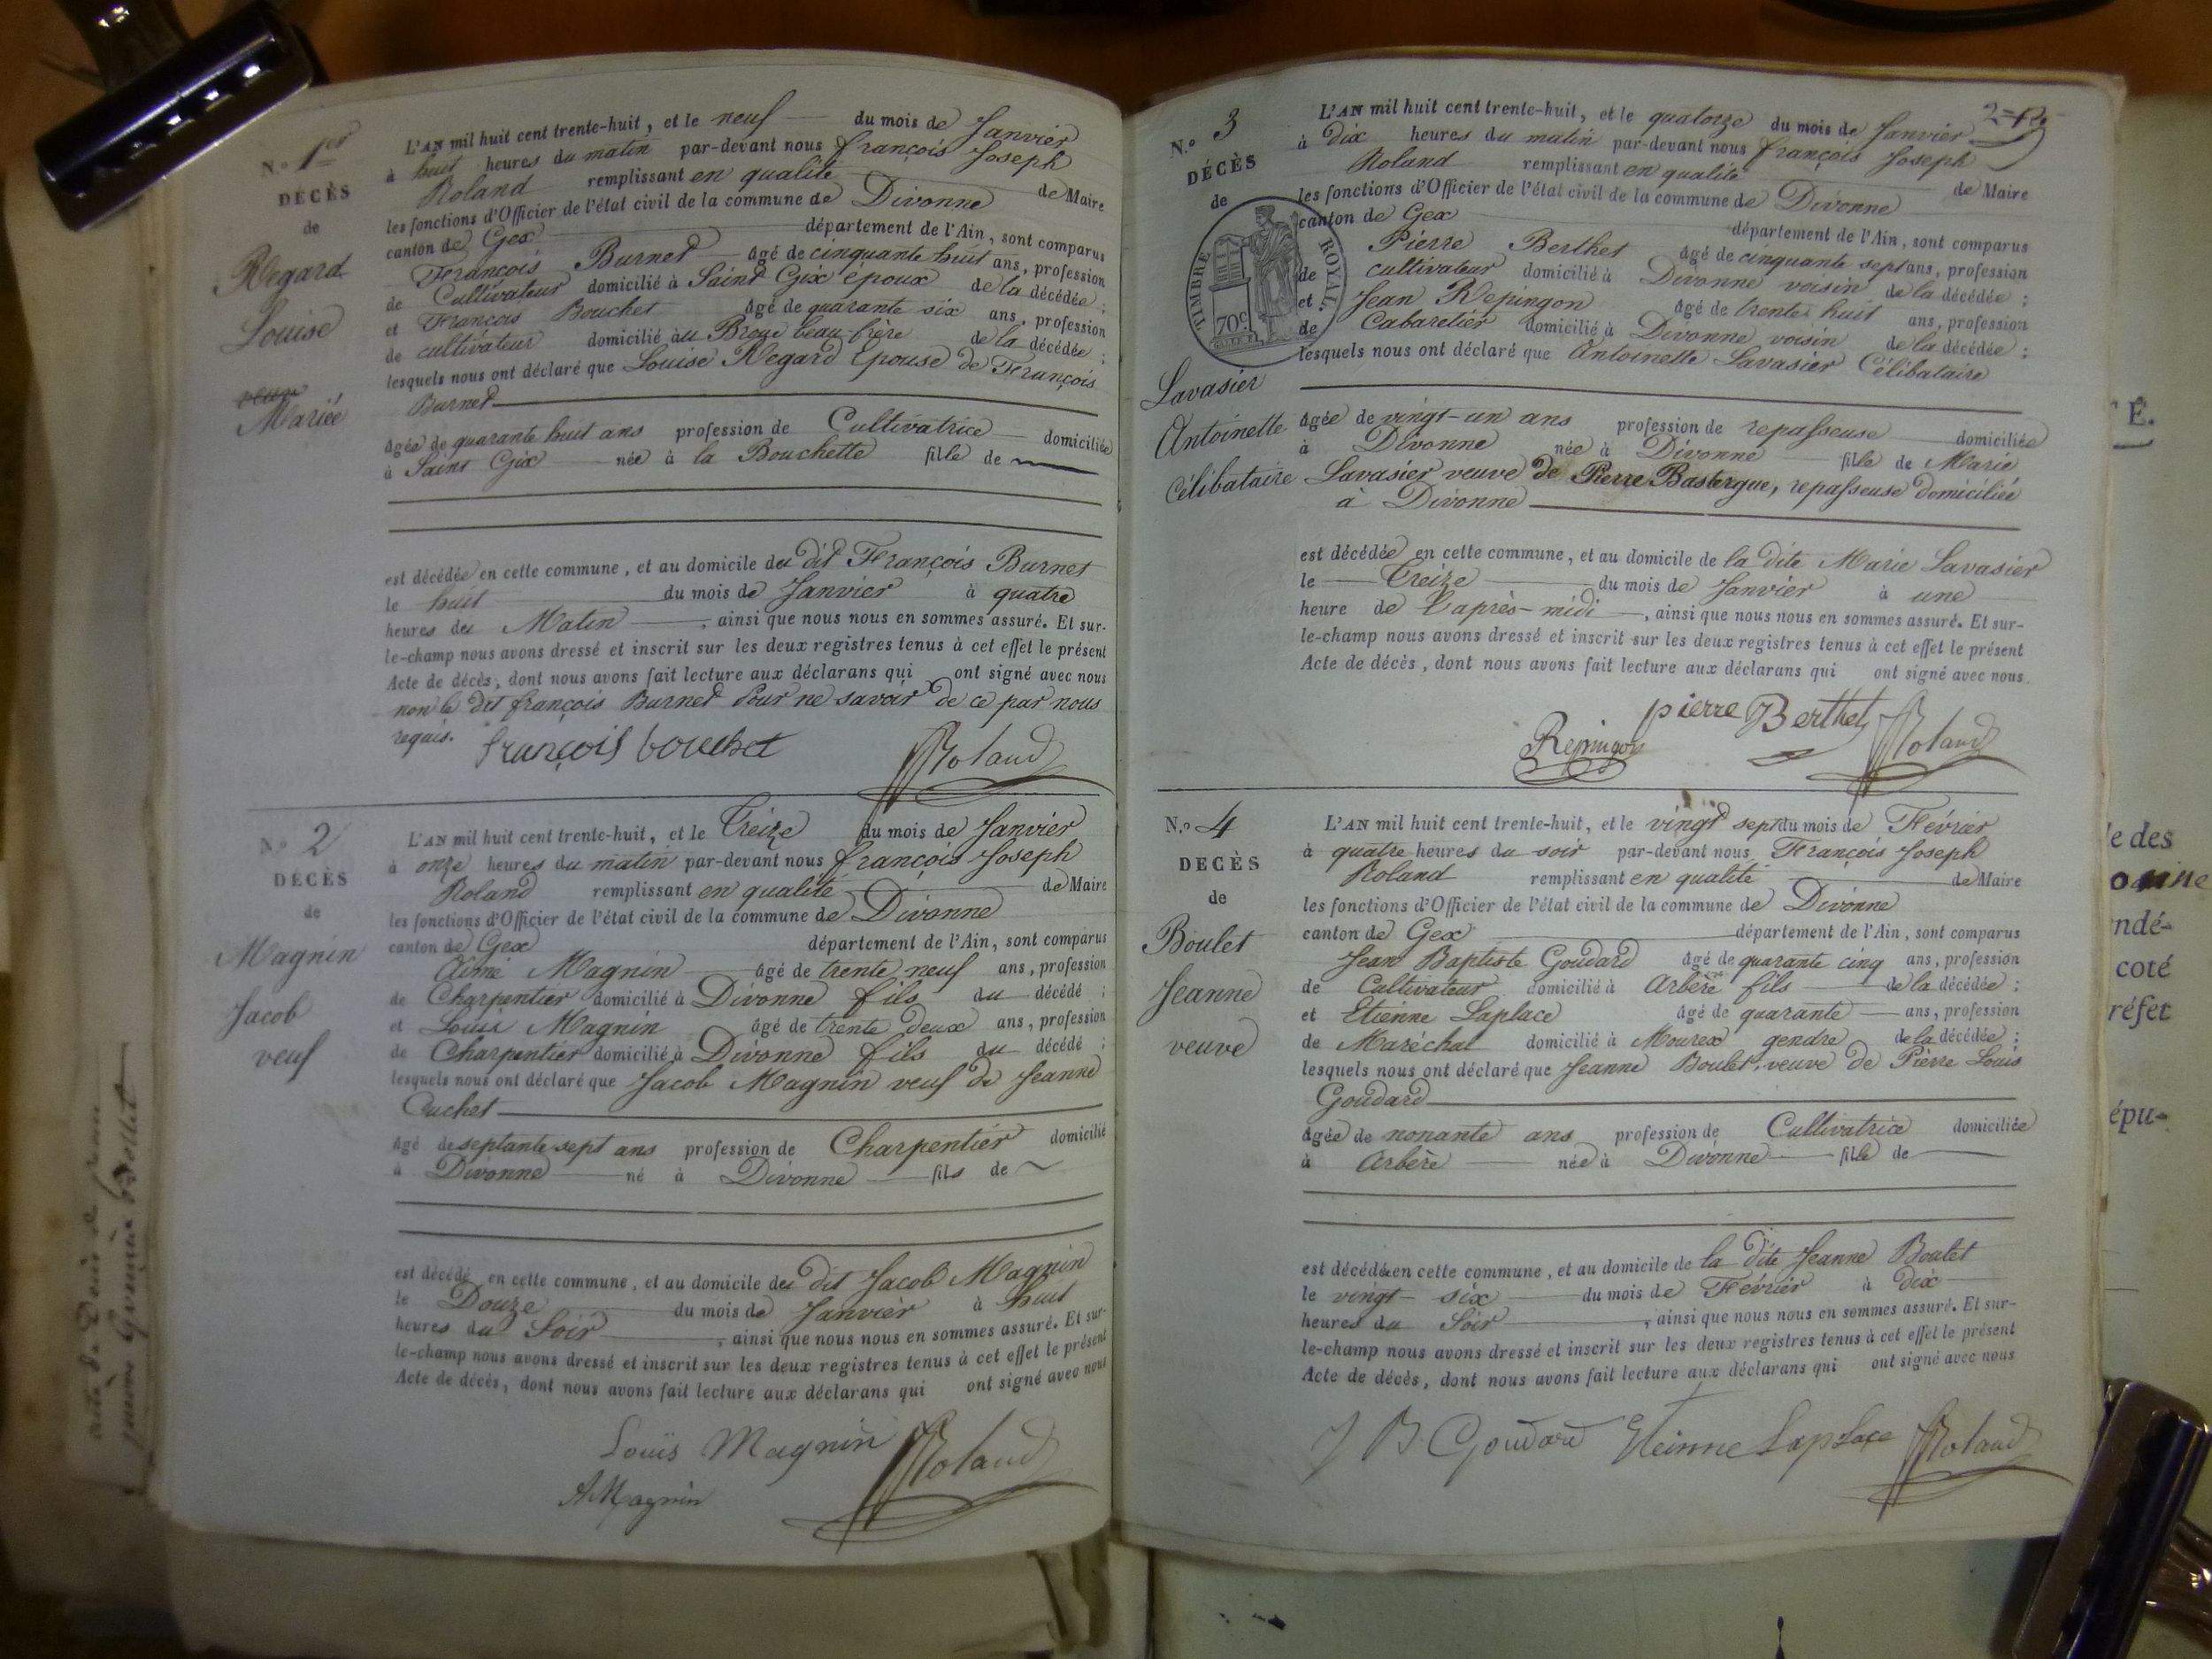 N.o 1er
DÉCÈS
de
Regard
Louise
veuve
Mariée
L'AN mil huit cent trente-huit, et le neuf du mois de Janvier
à huit heures du matin par-devant nous françois Joseph
Roland remplissant en qualité de Maire
les fonctions d'Officier de l'état civil de la commune de Divonne
canton de Gex département de l'Ain, sont comparus
François Burnet âgé de cinquante huit ans, profession
de Cultivateur domicilié à Saint Gix époux de la décédée ;
et François Bouchet âgé de quarante six ans, profession
de cultivateur domicilié au Broue beau-frère de la décédée ;
lesquels nous ont déclaré que Louise Regard Epouse de François
Burnet
âgée de quarante huit ans profession de Cultivatrice domiciliée
à Saint Gix née à la Bouchette fille de
est décédée en cette commune, et au domicile du dit François Burnet
le huit du mois de Janvier à quatre
heures du Matin, ainsi que nous nous en sommes assuré. Et sur-
le-champ nous avons dressé et inscrit sur les deux registres tenus à cet effet le présent
Acte de décès, dont nous avons fait lecture aux déclarans qui ont signé avec nous
non le dit françois Burnet Pour ne savoir de ce par nous
requis.
françois bouchet Roland
N.o 2
DÉCÈS
de
Magnin
Jacob
veuf
L'AN mil huit cent trente-huit, et le Treize du mois de Janvier
à onze heures du matin par-devant nous françois Joseph
Roland remplissant en qualité de Maire
les fonctions d'Officier de l'état civil de la commune de Divonne
canton de Gex département de l'Ain, sont comparus
Aimé Magnin âgé de trente neuf ans, profession
de Charpentier domicilié à Divonne fils du décédé ;
et Louis Magnin âgé de trente deux ans, profession
de Charpentier domicilié à Divonne fils du décédé ;
lesquels nous ont déclaré que Jacob Magnin veuf de Jeanne
Cuchet
âgé de septante sept ans profession de Charpentier domicilié
à Divonne né à Divonne fils de
est décédé en cette commune, et au domicile du dit Jacob Magnin
le Douze du mois de Janvier à huit
heures du Soir, ainsi que nous nous en sommes assuré. Et sur-
le-champ nous avons dressé et inscrit sur les deux registres tenus à cet effet le présent
Acte de décès, dont nous avons fait lecture aux déclarans qui ont signé avec nous
Louis Magnin Roland
A Magnin
N.o 3
DÉCÈS
de
TIMBRE ROYAL
70c
Lavasier
Antoinette
Célibataire
L'AN mil huit cent trente-huit, et le quatorze du mois de Janvier
à Dix heures du matin par-devant nous françois Joseph
Roland remplissant en qualité de Maire
les fonctions d'Officier de l'état civil de la commune de Divonne
canton de Gex département de l'Ain, sont comparus
Pierre Berthet âgé de cinquante sept ans, profession
de cultivateur domicilié à Divonne voisin de la décédée ;
et Jean Repingon âgé de trente huit ans, profession
de Cabaretier domicilié à Divonne voisin de la décédée ;
lesquels nous ont déclaré que Antoinette Lavasier Célibataire
âgée de vingt-un ans profession de repasseuse domiciliée
à Divonne née à Divonne fille de Marie
Lavasier veuve de Pierre Bastergue, repasseuse domiciliée
à Divonne
est décédée en cette commune, et au domicile de la dite Marie Lavasier
le Treize du mois de Janvier à une
heure de l'après-midi, ainsi que nous nous en sommes assuré. Et sur-
le-champ nous avons dressé et inscrit sur les deux registres tenus à cet effet le présent
Acte de décès, dont nous avons fait lecture aux déclarans qui ont signé avec nous.
pierre Berthet
Repingon Roland
N.o 4
DÉCÈS
de
Boulet
Jeanne
veuve
L'AN mil huit cent trente-huit, et le vingt sept du mois de Février
à quatre heures du soir par-devant nous François Joseph
Roland remplissant en qualité de Maire
les fonctions d'Officier de l'état civil de la commune de Divonne
canton de Gex département de l'Ain, sont comparus
Jean Baptiste Goudard âgé de quarante cinq ans, profession
de Cultivateur domicilié à Arbère fils de la décédée ;
et Etienne Laplace âgé de quarante ans, profession
de Maréchal domicilié à Mourex gendre de la décédée ;
lesquels nous ont déclaré que Jeanne Boulet, veuve de Pierre Louis
Goudard
âgée de nonante ans profession de Cultivatrice domiciliée
à Arbère née à Divonne fille de
est décédée en cette commune, et au domicile de la dite Jeanne Boulet
le vingt six du mois de Février à dix
heures du Soir, ainsi que nous nous en sommes assuré. Et sur-
le-champ nous avons dressé et inscrit sur les deux registres tenus à cet effet le présent
Acte de décès, dont nous avons fait lecture aux déclarans qui ont signé avec nous
J B. Goudard Etienne Laplace Roland
É.
le des
ndé-
coté
réfet
épu-